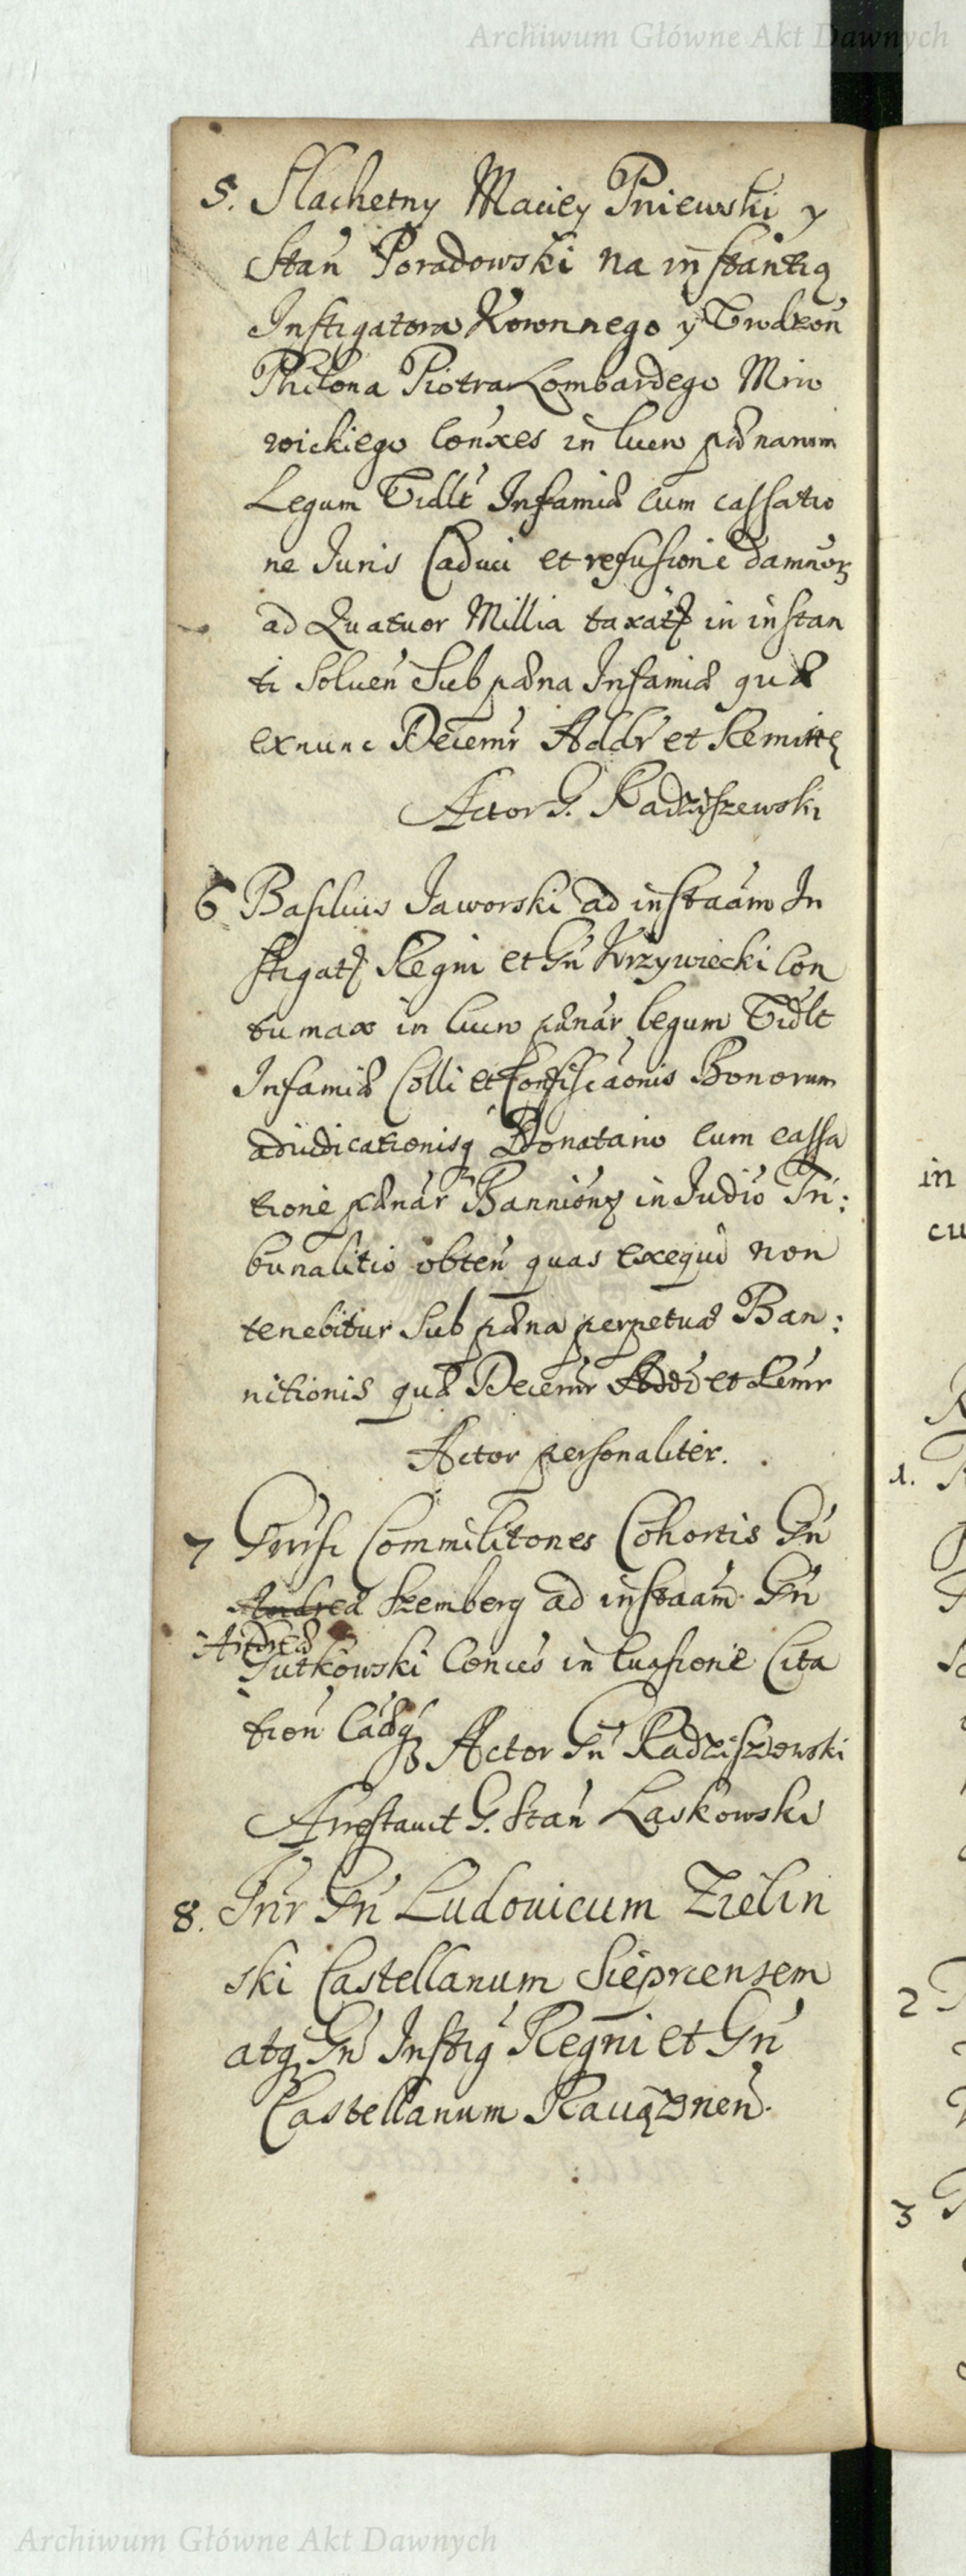 Archiwum Główne Akt Dawnych
5. Slachetny Maciey Pniewski y
Stan Poradowski na instantią
Instigatora Koronnego y
Philona Piotra Lombardego Mro
wickiego Conxes in lucro pænarum
Legum Vidlt Infamiæ cum cassatio
ne Juris Caduci et refusione damnor
ad Quatuor Millia taxat in instan
ti Soluen Sub pæna Infamiæ quæ
exnunc Decernr Addr et Remitt
Actor G. Radziszewski
6 Basilius Jaworski ad instaam In
stigat Regni et Gn Krzywiecki Con
tumax in lucro pænar legum Vidlt
Infamiæ Colli et Confiscaonis Bonorum
adiudicationisq Donatario cum cassa
tione pænar Bannion in Judio Tri:
bunalitio obten quas exequi non
tenebitur Sub pæna perpetuæ Ban:
nitionis quæ Decernr Addi et Remr
Actor personaliter.
7 Grrsi Commilitones Cohortis Gn
Andreæ Szemberg ad instaam Gn
Andreæ
Gutkowski Conces in luxsione Cita
tion Cadq Actor Gn Radziszewski
Arrestauit G. Stan Laskowski
8. Intr Gn Ludouicum Zielin
ski Castellanum Sieprcensem
atq Gn Instig Regni et Gn
Castellanum Raciąznen.
in
cu
1.
2
3
Archiwum Główne Akt Dawnych